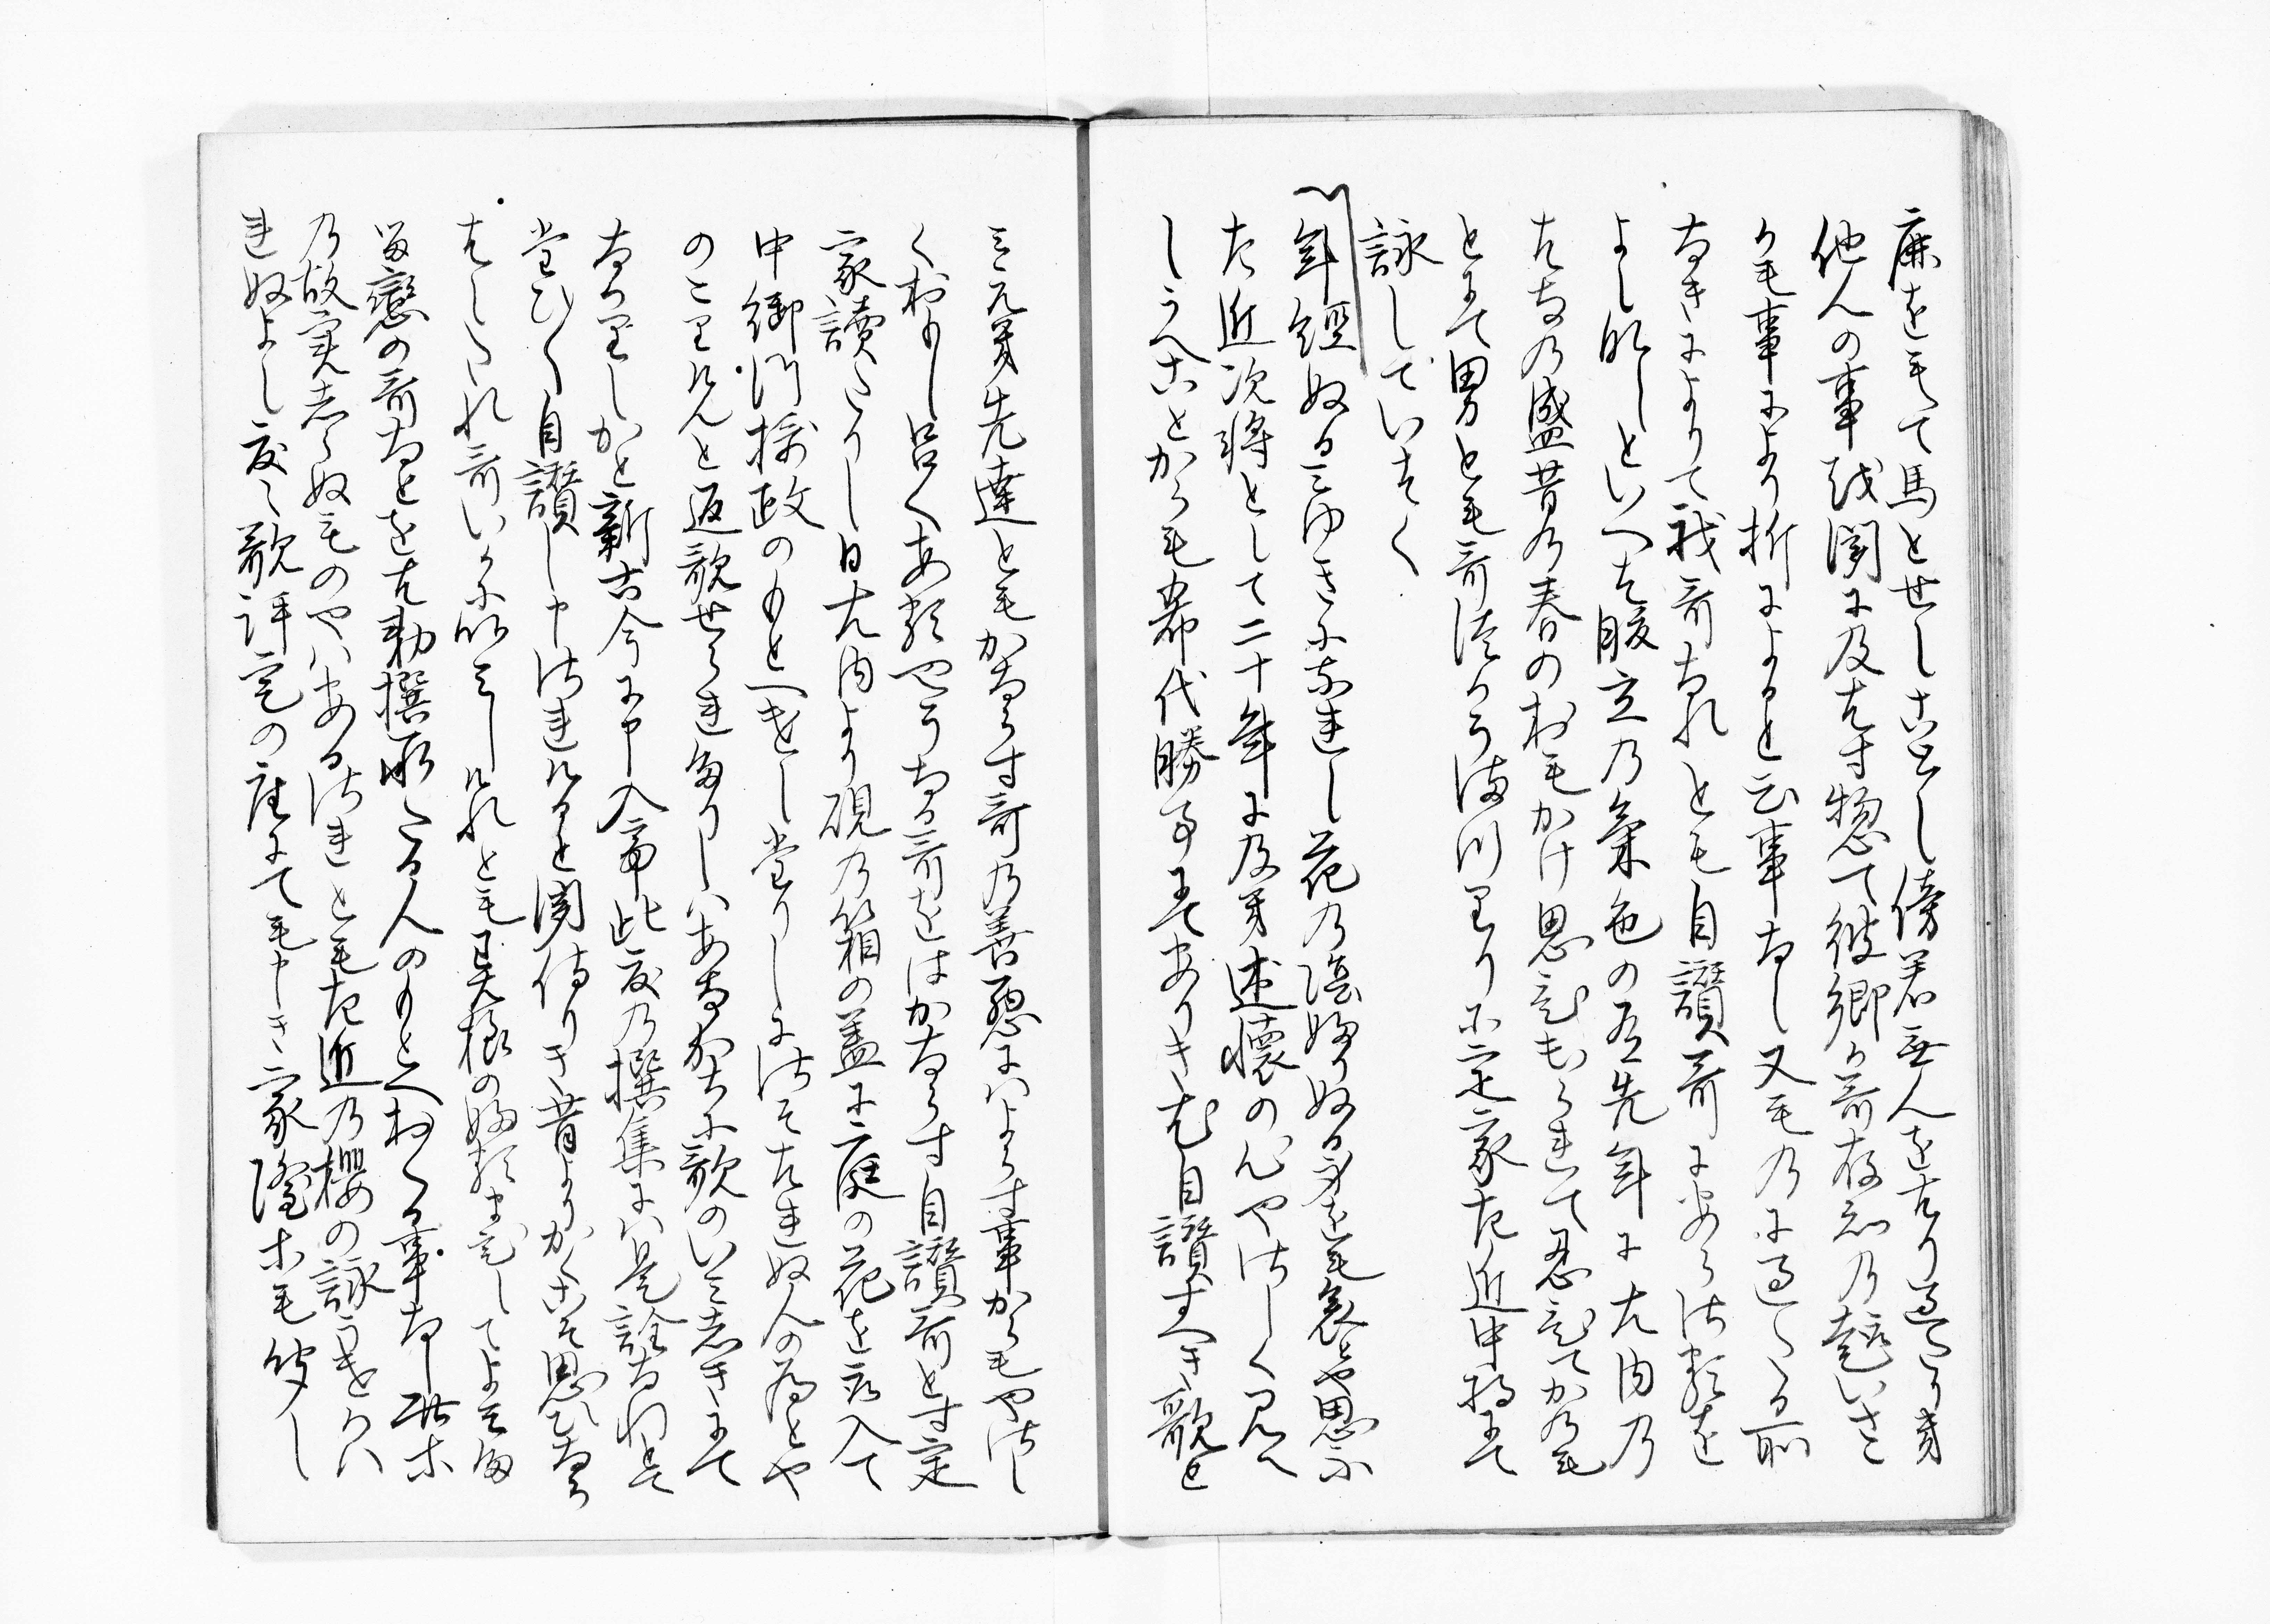 鹿をもて馬とせしことし傍若無人をはり過たりき
他人の事も聞に及はす惣て彼卿か哥存知の趣いさゝ
かも事により折によるといふ事なし又ものにすきたる所
なきによりて我哥なれとも自讃哥にあらさるを
よしなといへは腹立の氣色あり先年に大内の
花の盛昔の春のおもかけ思ひいてられて忍ひてかの
とにて男とも哥つかうまつりしに定家左近中将にて
詠していはく
年経ぬるみゆきになれし花の陰ふりぬる身をも哀とや思ふ
左近次将として二十年に及き述懐の心やさしく見え
しうへことからも希代勝事にてありき尤自讃すへき歌と
みえき先達ともかならす哥の善悪にはよらす事からもやさし
くおもしろくあるやうなる哥をはかならす自讃哥とす定
家讀たりし日大内より硯の箱の蓋に庭の花をとり入て
中御門摂政のもとへつかはしたりしにさそはれぬ人のためとや
のこりけんと返歌せられたりしはあなかちに歌のいみしきにて
なかりしかと新古今に申入て此度の撰集には是詮なりとて
たひ〳〵自讃し申されけると聞侍りき昔よりかくこそ思ひならは
はしたれ哥いかにいみしけれとも異様のふるまひしてよみた
る戀の哥なとをは勅撰承たる人のもとへおくる事なし此等
の故実しらぬものやはあるされとも左近の櫻の詠うけられ
れぬよし度々歌評定の座にても申き家隆等も聞し